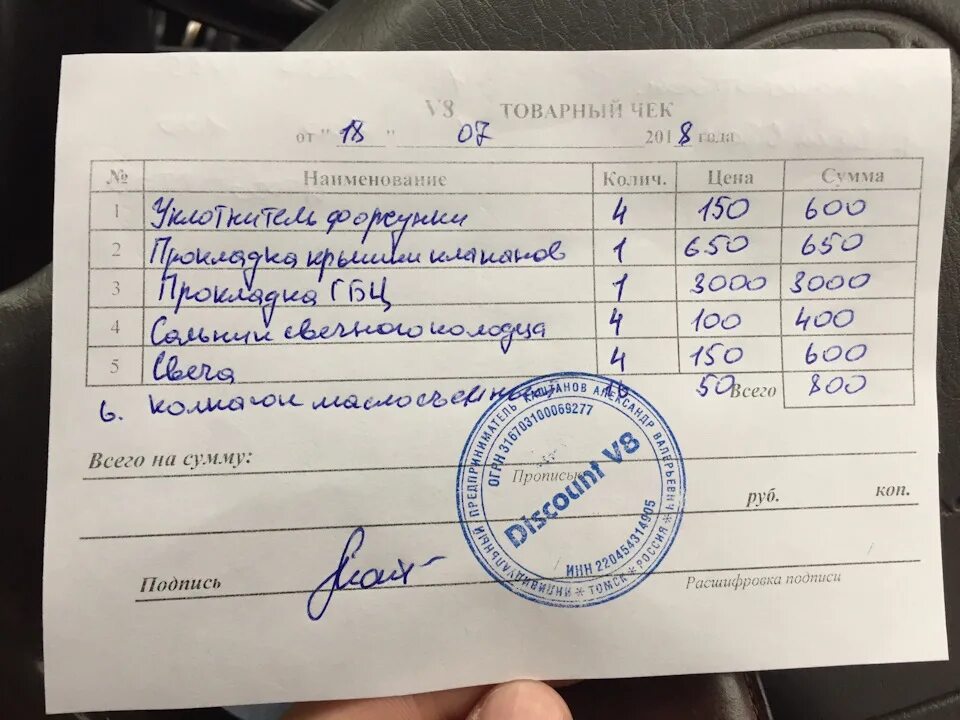 V8 ТОВАРНЫЙ ЧЕК
от " 18 " 07 2018 года
№ Наименование Колич. Цена Сумма
1 Уплотнитель форсунки 4 150 600
2 Прокладка крышки клапанов 1 650 650
3 Прокладка ГБЦ 1 3000 3000
4 Сальник свечного колодца 4 100 400
5 Свеча 4 150 600
6. Колпачок маслосъемный 16 50 Всего 800
Всего на сумму:
Прописью
руб. коп.
Подпись
Расшифровка подписи
ИНДИВИДУАЛЬНЫЙ ПРЕДПРИНИМАТЕЛЬ АЛЕКСАНДР ВАЛЕРЬЕВИЧ
* РОССИЯ * ТОМСК *
ОГРН 316703100069277
Discount V8
ИНН 220454314905